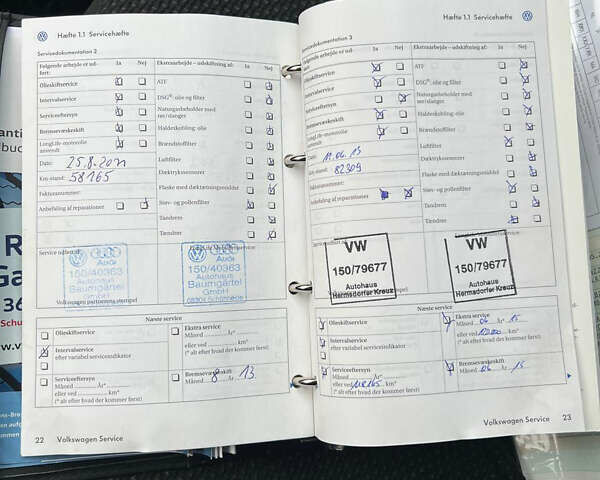 Hæfte 1.1 Servicehæfte
Servicedokumentation 2
Følgende arbejde er ud- Ja Nej
ført:
Olieskiftservice
Intervalservice
Serviceeftersyn
Bremsevæskeskift
LongLife-motorolie
anvendt
Dato: 25.8.2011
Km-stand: 58165
Fakturanummer:
Anbefaling af reparationer
Ekstraarbejde – udskiftning af: Ja Nej
ATF
DSG®: olie og filter
Naturgasbeholder med
rør/slanger
Haldexkobling: olie
Brændstoffilter
Luftfilter
Dæktryksensorer
Flaske med dæktætningsmiddel
Støv- og pollenfilter
Tandrem
Tændrør
Service udført af:
Audi
150/40363
Autohaus
Baumgärtel
GmbH
Audi
150/40363
Autohaus
Baumgärtel
GmbH
Volkswagen partnerens stempel
Næste service
Olieskiftservice
Intervalservice
efter variabel serviceindikator
Serviceeftersyn
Måned .......... År*
eller ved .......... km*
(* alt efter hvad der kommer først)
Ekstra service
Måned .......... År*
eller ved .......... km*
(* alt efter hvad der kommer først)
Bremsevæskeskift
Måned 8 År 13
22 Volkswagen Service
Hæfte 1.1 Servicehæfte
Servicedokumentation 3
Følgende arbejde er ud- Ja Nej
ført:
Olieskiftservice
Intervalservice
Serviceeftersyn
Bremsevæskeskift
LongLife-motorolie
anvendt
Dato: 11.06.13
Km-stand: 82309
Fakturanummer:
Anbefaling af reparationer
Ekstraarbejde – udskiftning af: Ja Nej
ATF
DSG®: olie og filter
Naturgasbeholder med
rør/slanger
Haldexkobling: olie
Brændstoffilter
Luftfilter
Dæktryksensorer
Flaske med dæktætningsmiddel
Støv- og pollenfilter
Tandrem
Tændrør
VW
150/79677
Autohaus
Hermsdorfer Kreuz
VW
150/79677
Autohaus
Hermsdorfer Kreuz
Næste service
Olieskiftservice
Intervalservice
efter variabel serviceindikator
Serviceeftersyn
Måned .......... År*
eller ved 112165 km*
(* alt efter hvad der kommer først)
Ekstra service
Måned 06 År 15
eller ved km*
(* alt efter hvad der kommer først)
Bremsevæskeskift
Måned 06 År 15
Volkswagen Service 23